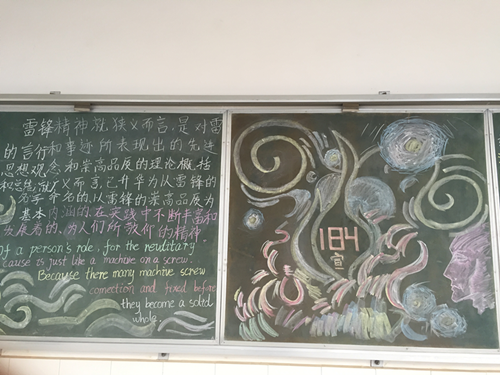 雷锋精神就狭义而言,是对雷
的言行和事迹所表现出的先进
思想观念和崇高品质的理论概括
广义而言,已升华为以雷锋的
名字命名的,以雷锋的崇高品质为
基本内涵的,在实践中不断丰富和
发展着的,为人们所敬仰的精神
Of a person's role, for the
cause is just like a machine on a screw.
Because there many machine screw
connection and fixed before
they become a solid
whole.
184
宣